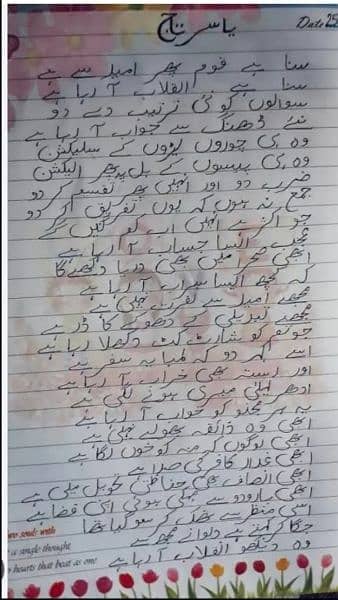 یاسر تاج
Date 25
سنا ہے قوم پھر امید سے ہے
سنا ہے انقلاب آ رہا ہے
سوالوں کو نئی ترتیب دے دو
نئے ڈھنگ سے جواب آ رہا ہے
وہ ہی چوروں لٹیروں کے سلیکشن
وہ ہی پیسوں کے بل پر پھر الیکشن
ضرب دو اور انہیں پھر تقسیم کر دو
جمع نہ ہوں کہ یوں تفریق کر دو
جو اکثر انہیں اب کو کے
عجب ایسا حساب آ رہا ہے
ابھی صحرا میں بھی دریا دکھے گا
کہ کچھ ایسا سراب آ رہا ہے
مجھے امید سے نفرت نہیں ہے
مجھے تبدیلی کے دھوکے کا ڈر ہے
جو تم کو شارٹ کٹ دکھلا رہا ہے
اسے کہہ دو کہ لمبا یہ سفر ہے
اور رستہ بھی خراب آ رہا ہے
ادھر میری ہونے لگی ہے
یہ ہر مجھ کو خواب آ رہا ہے
ابھی وہ ذائقہ بھولے نہیں ہے
ابھی لوگوں کے منہ کو خوں لگا ہے
ابھی غدار کافر کی صدا ہے
ابھی انصاف بھی حفاظتی تحویل میں ہے
ابھی بارود سے ہوئی اپنی فضا ہے
اسی منظر سے تھک کر سو گیا تھا
جگا کر کہتے ہے دلوانے مجھ سے
وہ دیکھو انقلاب آ رہا ہے
two souls with
a single thought
hearts that beat as one